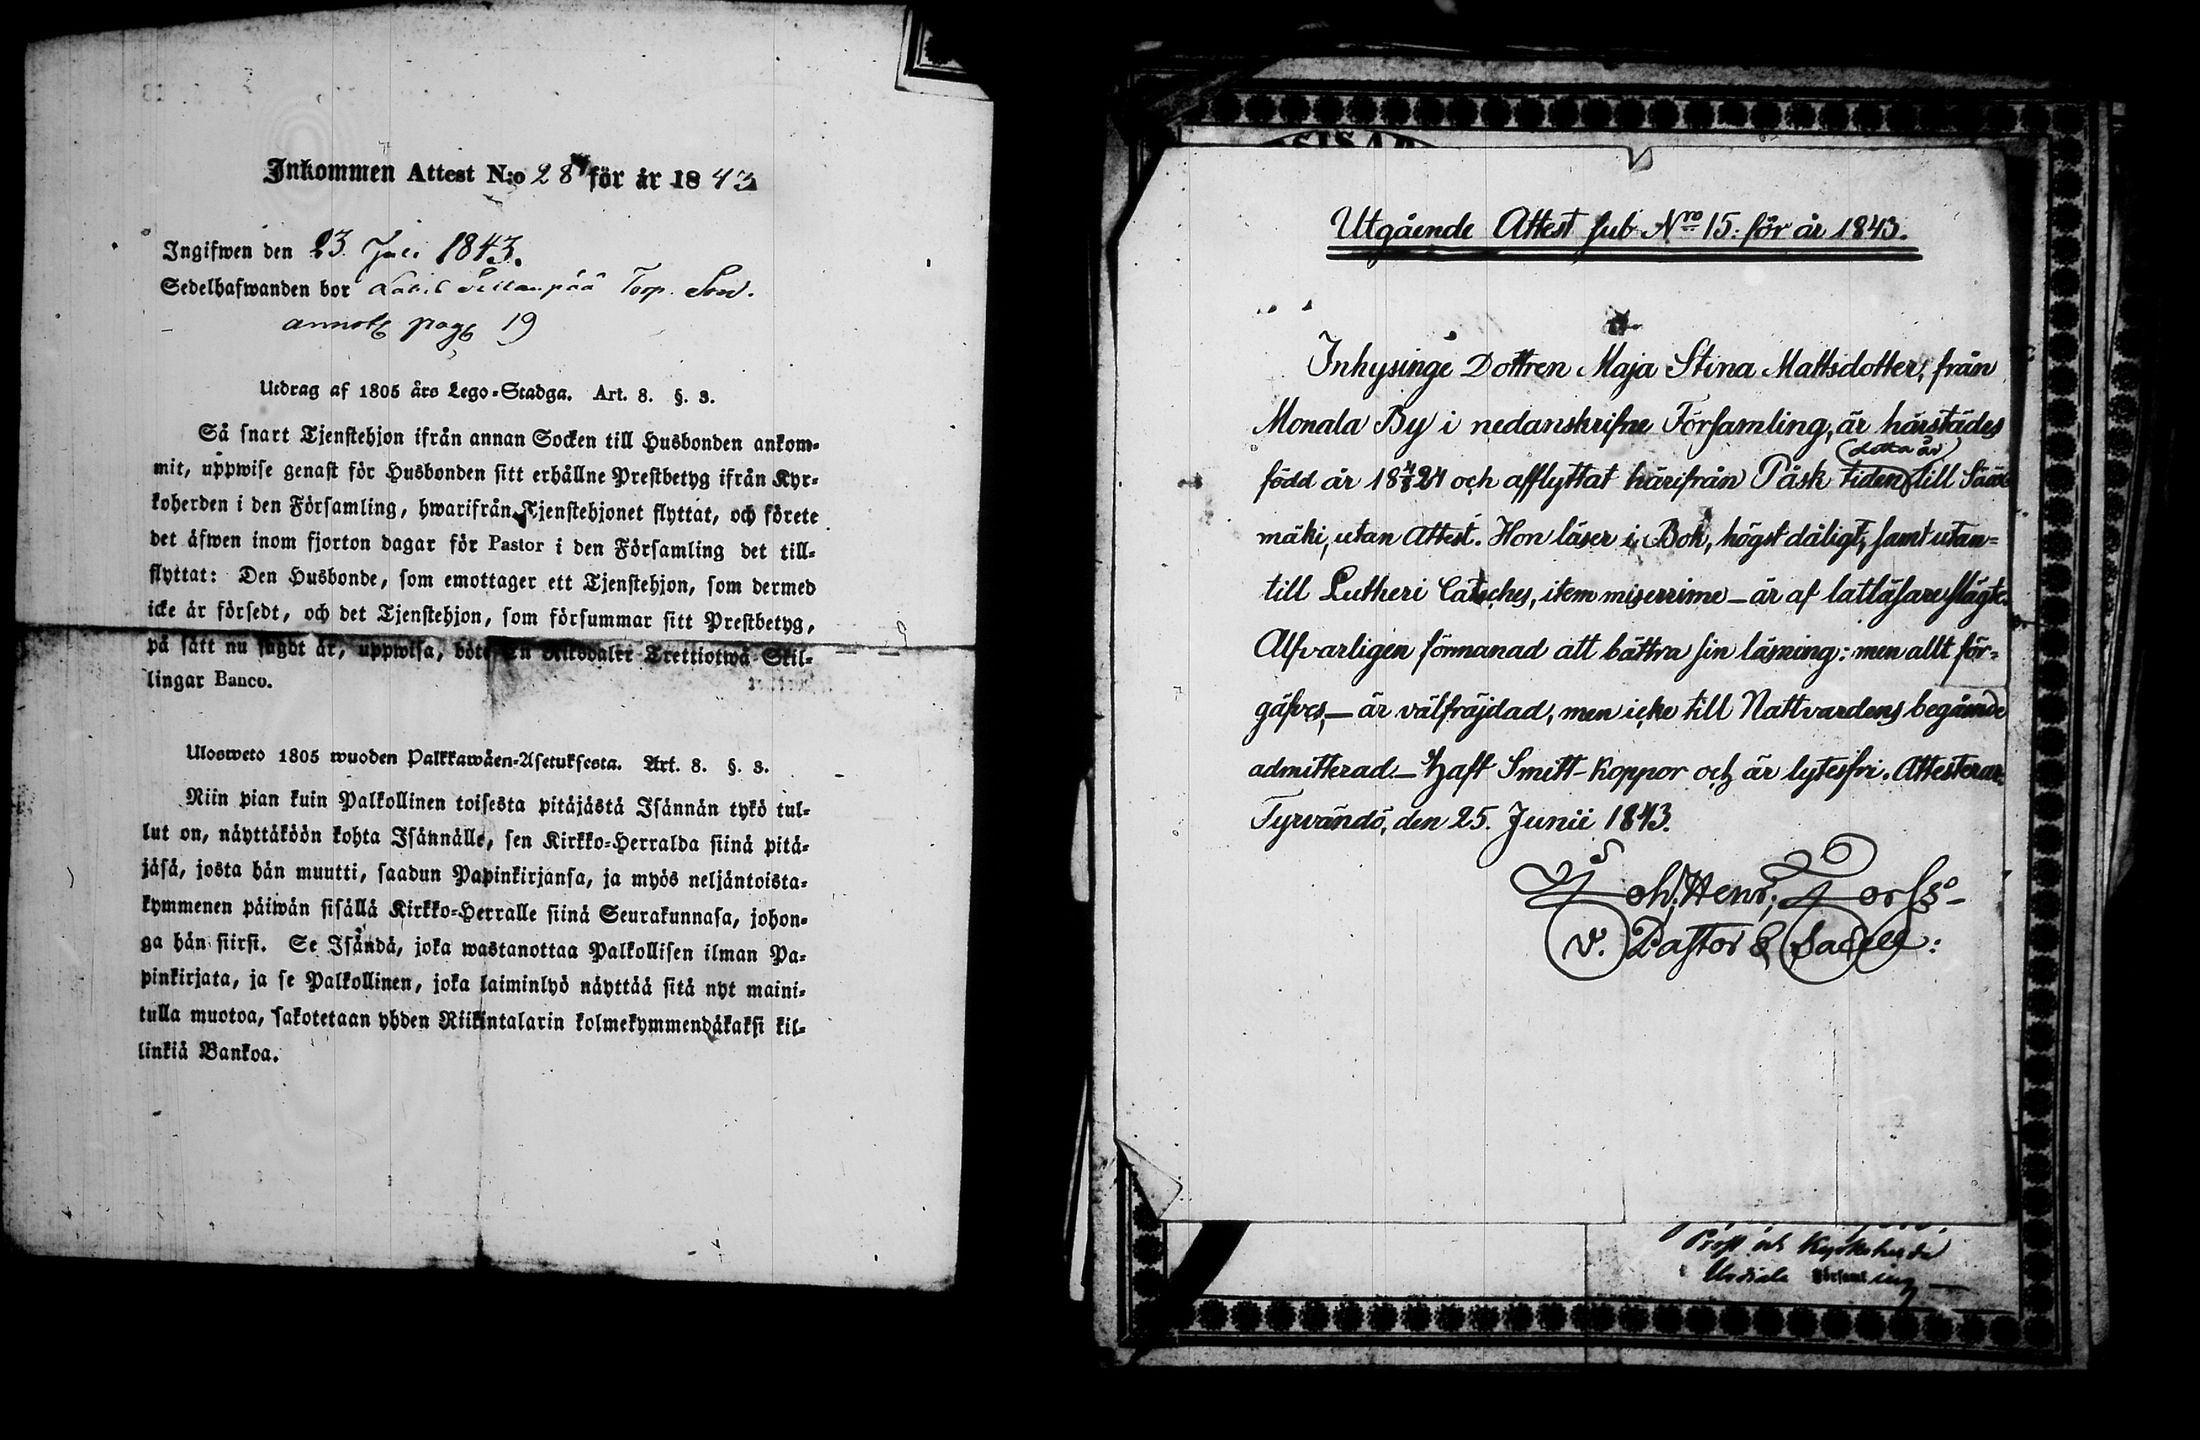 Inkommen Attest N:o 28 för år 1843
Ingifwen den 23 Juli 1843.
Sedelhafwanden bor Torp.
annot pag 19
Utdrag af 1805 års Lego-Stadga. Art. 8. §. 3.
Så snart Tjenstehjon ifrån annan Socken till Husbonden ankom-
mit, uppwise genast för Husbonden sitt erhållne Prestbetyg ifrån Kyr-
koherden i den Församling, hwarifrån Tjenstehjonet flyttat, och förete
det äfwen inom fjorton dagar för Pastor i den Församling det till-
flyttat: Den Husbonde, som emottager ett Tjenstehjon, som dermed
icke är försedt, och det Tjenstehjon, som försummar sitt Prestbetyg,
på sätt nu sagdt är, uppwisa, böte En Riksdaler Trettiotwå Skil-
lingar Banco.
Ulosweto 1805 wuoden Palkkawäen-Asetuksesta. Art. 8. §. 3.
Niin pian kuin Palkollinen toisesta pitäjästä Isännän tykö tul-
lut on, näyttäköön kohta Isännälle, sen Kirkko-Herralda siinä pitä-
jäsä, josta hän muutti, saadun Papinkirjansa, ja myös neljäntoista-
kymmenen päiwän sisällä Kirkko-Herralle siinä Seurakunnasa, johon-
ga hän siirsi. Se Isändä, joka wastanottaa Palkollisen ilman Pa-
pinkirjata, ja se Palkollinen, joka laiminlyö näyttää sitä nyt maini-
tulla muotoa, sakotetaan yhden Riikintalarin kolmekymmendäkaksi kil-
linkiä Bankoa.
Utgående Attest sub Nro 15. för år 1843.
Inhysinge Dottren Maja Stina Mattsdotter, från
Monala By i nedanskrifne Församling, är härstädes
född år 18 4/8 24 och afflyttat härifrån Påsk tiden (detta år) till Sääx
mäki, utan Attest. Hon läser i Bok, högst dåligt, samt utan-
till Lutheri Catches, item miserrime – är af latläsareslägte.
Alfvarligen förmanad att bättra sin läsning: men allt för-
gäfves, – är välfräjdad, men icke till Nattvardens begående
admitterad – Haft Smitt-koppor och är lytesfri. Attesterar
Tyrvändö, den 25. Junii 1843.
Joh: Henr; Forss
v. Pastor & Sacell:
Prost och Kyrkoherde
Urdiala Församling